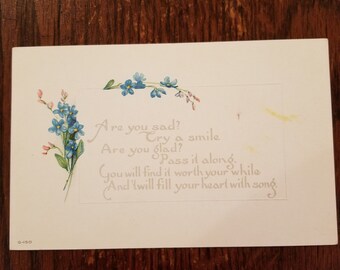 Are you sad?
Try a smile
Are you glad?
Pass it along.
You will find it worth your while
And I will fill your heart with song